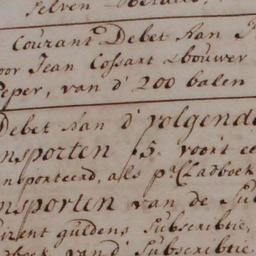 Selven
Courant Debet Aan J
oor Jean Cossart & bouwer
Peper, van d' 200 balen
Debet Aan d' volgende
ansporten 5. voort ee
ansporteerd, als p:r Cladboek
nsporten van de Su
izent guldens Subscribtie,
dboek van d' Subscribtie